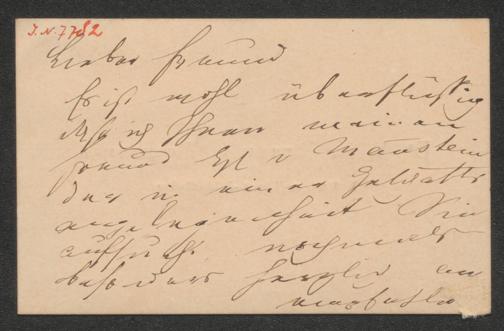 J.N. 7782
Lieber Freund
Es ist wohl überflüssig
daß ich Ihnen meinen
Freund v Manstein
der in einer Geschäfts
angelegenheit Sie
aufsucht nochmals
besonders herzlich an
empfehle